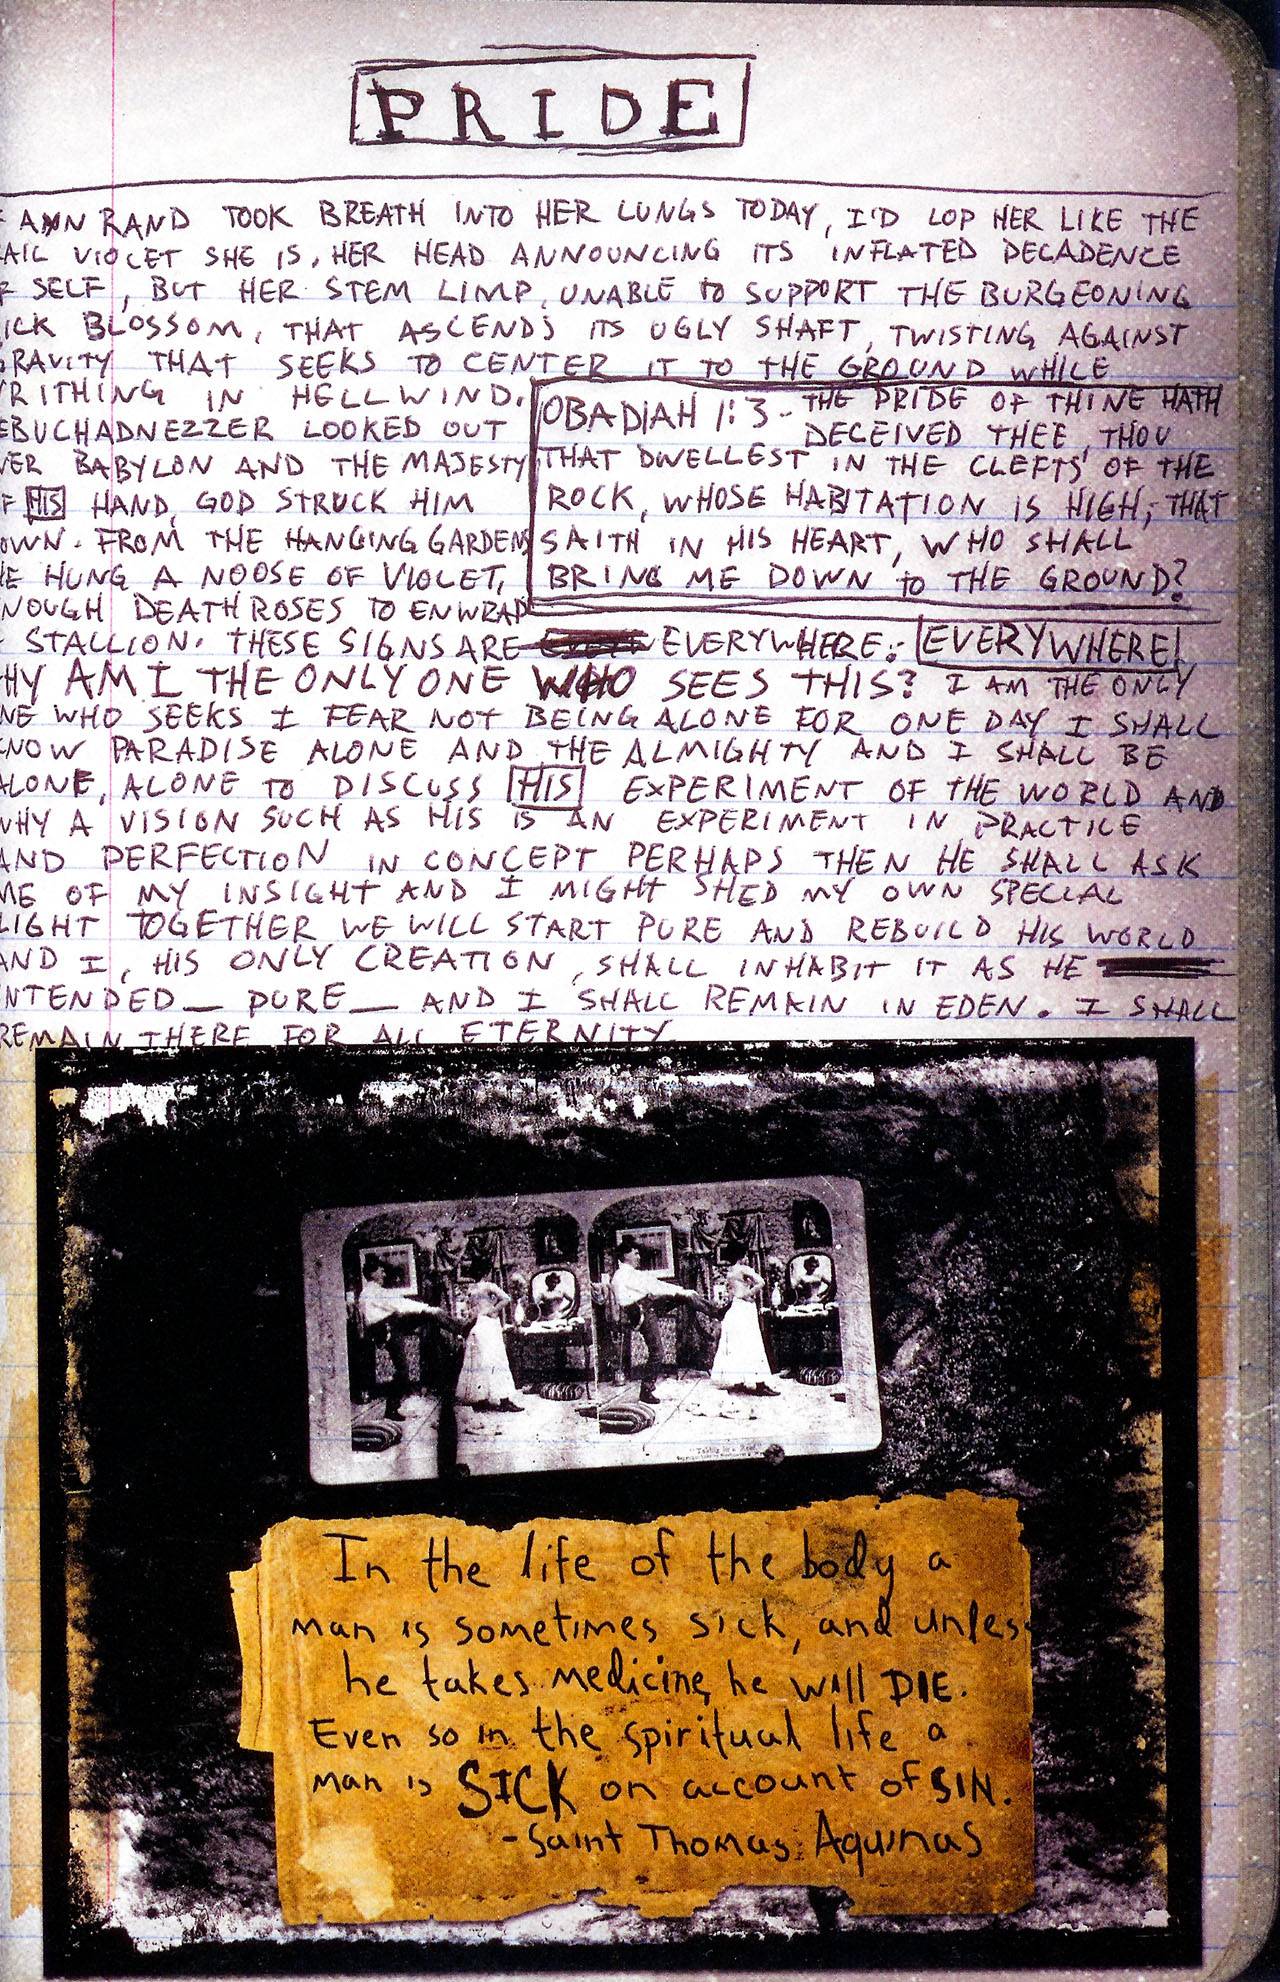 PRIDE
ANN RAND TOOK BREATH INTO HER LUNGS TODAY, I'D LOP HER LIKE THE
AIL VIOLET SHE IS, HER HEAD ANNOUNCING ITS INFLATED DECADENCE
F SELF, BUT HER STEM LIMP, UNABLE to SUPPORT THE BURGEONING
ICK BLOSSOM, THAT ASCENDS ITS UGLY SHAFT, TWISTING AGAINST
GRAVITY THAT SEEKS TO CENTER IT TO THE GROUND WHILE
RITHING IN HELLWIND.
EBUCHADNEZZER LOOKED OUT
VER BABYLON AND THE MAJESTY
F HIS HAND, GOD STRUCK HIM
OWN. FROM THE HANGING GARDENS
HE HUNG A NOOSE OF VIOLET,
NOUGH DEATH ROSES TO ENWRAP
OBADIAH 1:3 - THE PRIDE OF THINE HATH
DECEIVED THEE, THOU
THAT DWELLEST IN THE CLEFTS OF THE
ROCK, WHOSE HABITATION IS HIGH; THAT
SAITH IN HIS HEART, WHO SHALL
BRING ME DOWN to THE GROUND?
STALLION. THESE SIGNS ARE EVERYWHERE. EVERYWHERE!
HY AM I THE ONLY ONE WHO SEES THIS? I AM THE ONLY
NE WHO SEEKS I FEAR NOT BEING ALONE FOR ONE DAY I SHALL
KNOW PARADISE ALONE AND THE ALMIGHTY AND I SHALL BE
ALONE, ALONE to DISCUSS HIS EXPERIMENT OF THE WORLD AND
WHY A VISION SUCH AS HIS IS AN EXPERIMENT IN PRACTICE
AND PERFECTION IN CONCEPT PERHAPS THEN HE SHALL ASK
ME OF MY INSIGHT AND I MIGHT SHED MY OWN SPECIAL
LIGHT TOGETHER WE WILL START PURE AND REBUILD HIS WORLD
AND I, HIS ONLY CREATION, SHALL INHABIT IT AS HE
NTENDED — PURE — AND I SHALL REMAIN IN EDEN. I SHALL
REMAIN THERE FOR ALL ETERNITY.
In the life of the body a
man is sometimes sick, and unles
he takes medicine, he will DIE.
Even so in the spiritual life a
man is SICK on account of SIN.
- Saint Thomas Aquinas